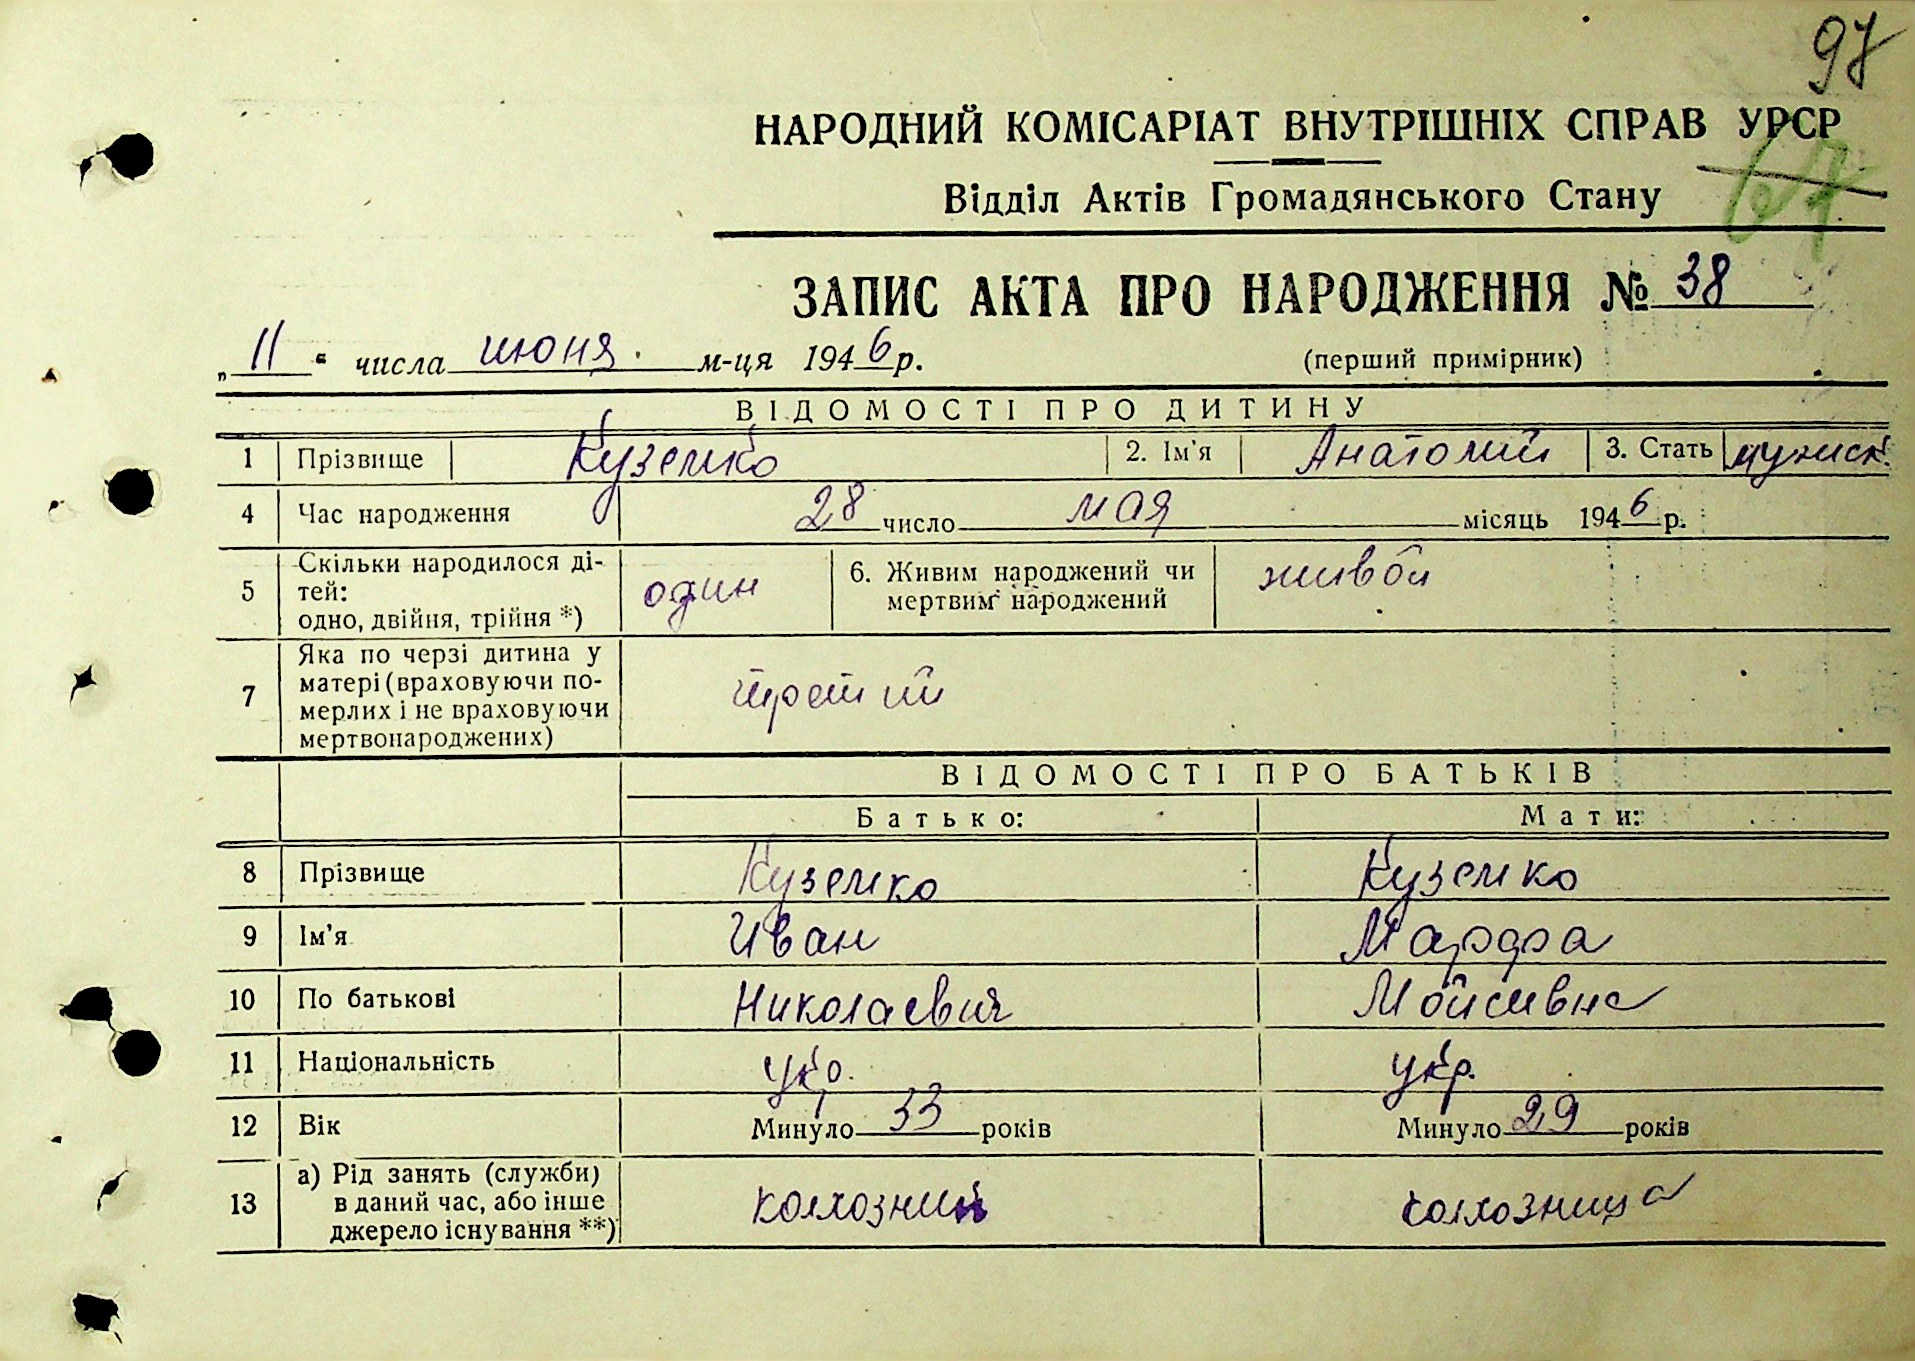 97
НАРОДНИЙ КОМІСАРІАТ ВНУТРІШНІХ СПРАВ УРСР
67
Відділ Актів Громадянського Стану
ЗАПИС АКТА ПРО НАРОДЖЕННЯ № 38
„11“ числа июня м-ця 1946 р. (перший примірник)
ВІДОМОСТІ ПРО ДИТИНУ
1 Прізвище Куземко 2. Ім'я Анатолий 3. Стать мужск.
4 Час народження 28 число мая місяць 1946 р.
5 Скільки народилося ді-
тей:
одно, двійня, трійня *) один 6. Живим народжений чи
мертвим народжений живой
7 Яка по черзі дитина у
матері (враховуючи по-
мерлих і не враховуючи
мертвонароджених) третий
ВІДОМОСТІ ПРО БАТЬКІВ
Батько: Мати:
8 Прізвище Куземко Куземко
9 Ім'я Иван Марфа
10 По батькові Николаевич Мойсивна
11 Національність укр. укр.
12 Вік Минуло 33 років Минуло 29 років
13 а) Рід занять (служби)
в даний час, або інше
джерело існування **) колхозник колхозница